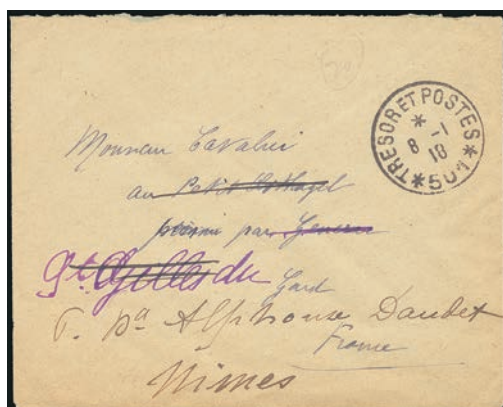 TRESOR ET POSTES
* 8 -1 18
* 501 *
Monsieur Cavalier
au Petit St
par
St Gilles du
Gard
Alphonse Daudet
France
Nimes